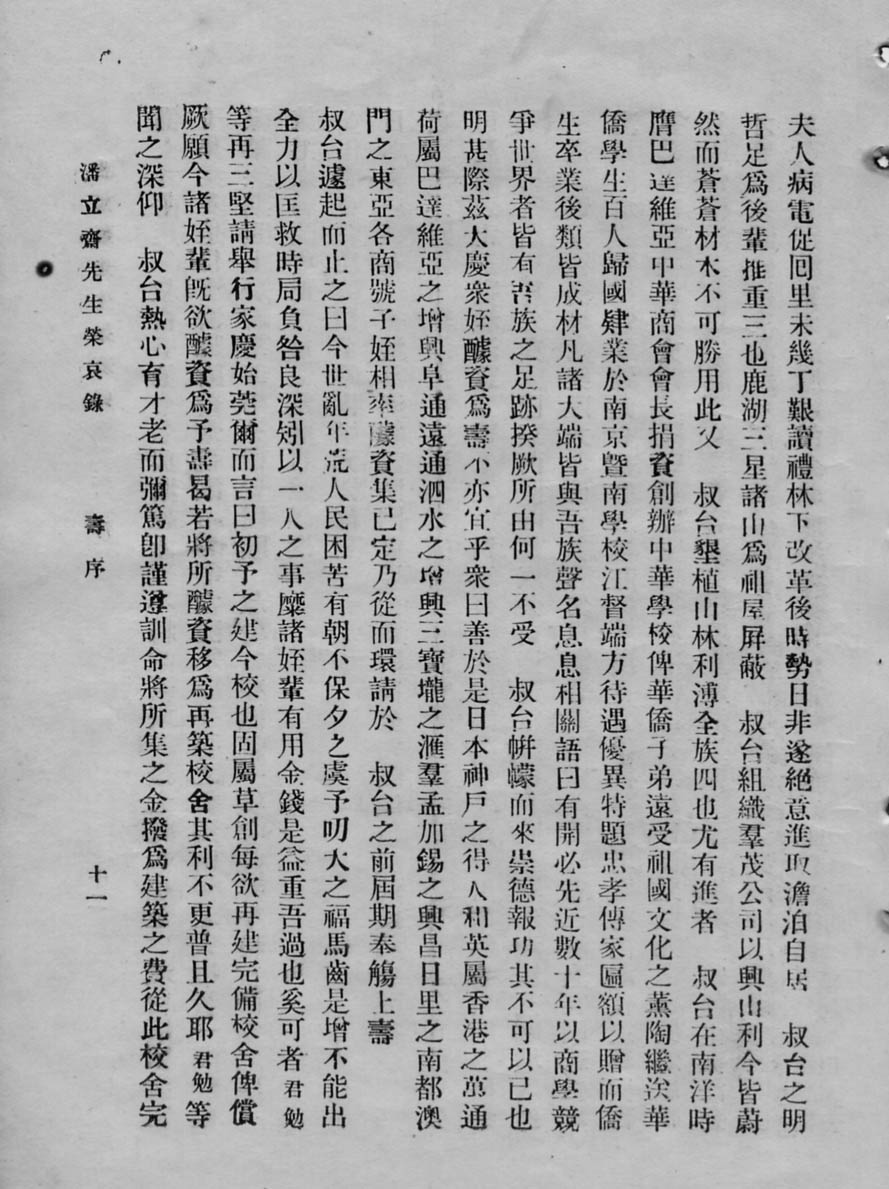 夫人病電促回里未幾丁艱讀禮林下改革後時勢日非遂絕意進取澹泊自居　叔台之明
哲足爲後輩推重三也鹿湖三星諸山爲祖屋屏蔽　叔台組織羣茂公司以興山利今皆蔚
然而蒼蒼材木不可勝用此又　叔台墾植山林利溥全族四也尤有進者　叔台在南洋時
膺巴達維亞中華商會會長捐資創辦中華學校俾華僑子弟遠受祖國文化之薰陶繼送華
僑學生百人歸國肄業於南京曁南學校江督端方待遇優異特題忠孝傳家匾額以贈而僑
生卒業後類皆成材凡諸大端皆與吾族聲名息息相關語曰有開必先近數十年以商學競
爭世界者皆有吾族之足跡揆厥所由何一不受　叔台帡幪而來崇德報功其不可以已也
明甚際茲大慶衆姪醵資爲壽不亦宜乎衆曰善於是日本神戶之得人和英屬香港之萬通
荷屬巴達維亞之增興阜通遠通泗水之增興三寶壠之滙羣孟加錫之興昌日里之南都澳
門之東亞各商號子姪相率醵資集已定乃從而環請於　叔台之前屆期奉觴上壽
叔台遽起而止之曰今世亂年荒人民困苦有朝不保夕之虞予叨天之福馬齒是增不能出
全力以匡救時局負咎良深矧以一人之事糜諸姪輩有用金錢是益重吾過也奚可者君勉
等再三堅請舉行家慶始莞爾而言曰初予之建今校也固屬草創每欲再建完備校舍俾償
厥願今諸姪輩旣欲醵資爲予壽曷若將所醵資移爲再築校舍其利不更普且久耶君勉等
聞之深仰　叔台熱心有才老而彌篤卽謹遵訓命將所集之金撥爲建築之費從此校舍完
潘立齋先生榮哀錄　壽序　十一